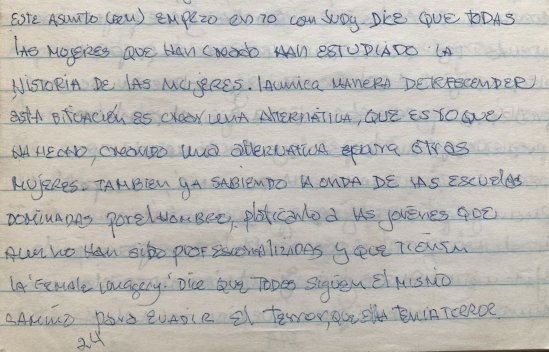 Este Asunto (con) EMPEZO en 70 con Judy DICE QUE TODAS
LAS MUJERES QUE HAN CREADO HAN ESTUDIADO LA
HISTORIA DE LAS MUJERES. La unica MANERA DE TRESCENDER
ESTA SITUACIÓN ES CREAR UNA ALTERNATIVA, QUE ES LO QUE
HA HECHO, CREANDO UNA ALTERNATIVA para OTRAS
MUJERES. TAMBIEN YA SABIENDO LA ONDA DE LAS ESCUELAS
DOMINADAS POR EL HOMBRE, platicando a LAS JOVENES QUE
AUN NO HAN SIDO PROFESIONALIZADAS y QUE TIENEN
LA 'Female imagery.' Dice QUE TODOS SIGUEN EL MISMO
CAMINO para EVADIR El terror, QUE ELLA TENIA TERROR.
24